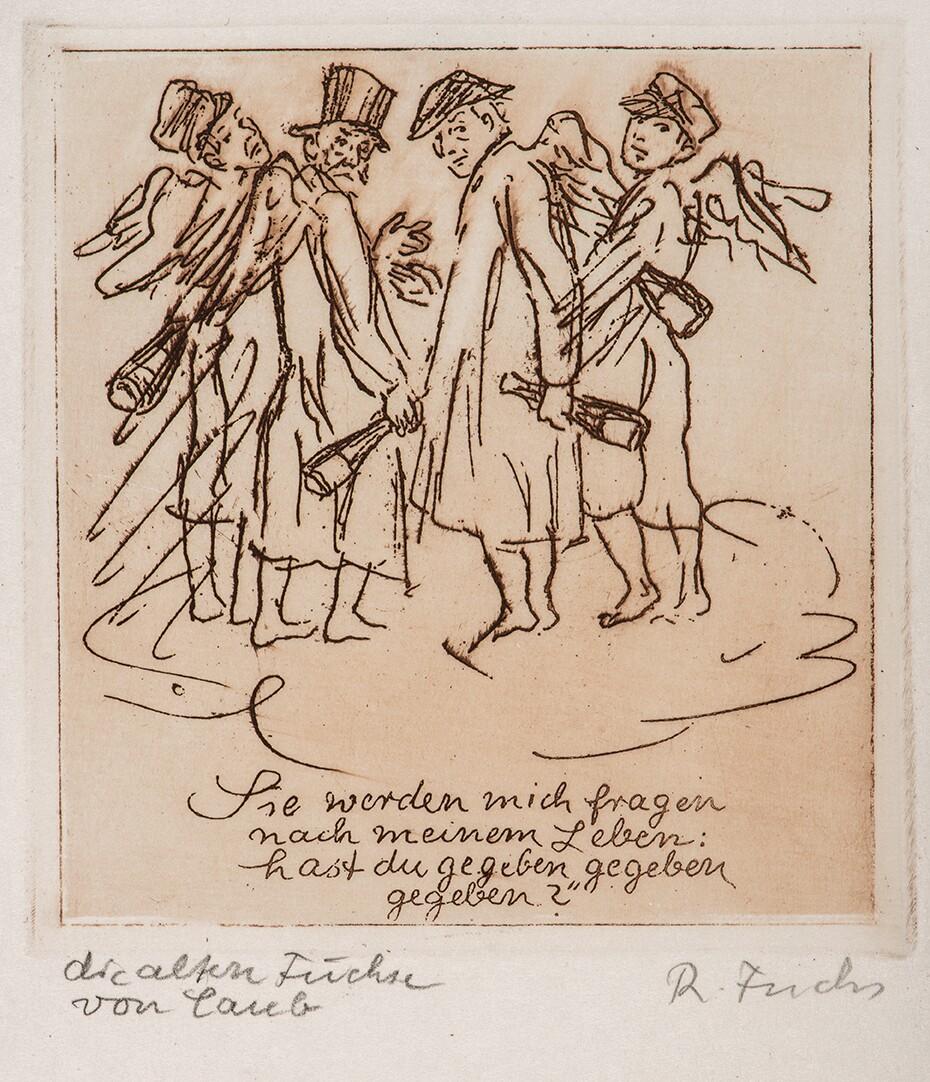 Sie werden mich fragen
nach meinem Leben:
hast du gegeben gegeben
gegeben?"
die alten Füchse
von Laub
R. Fuchs